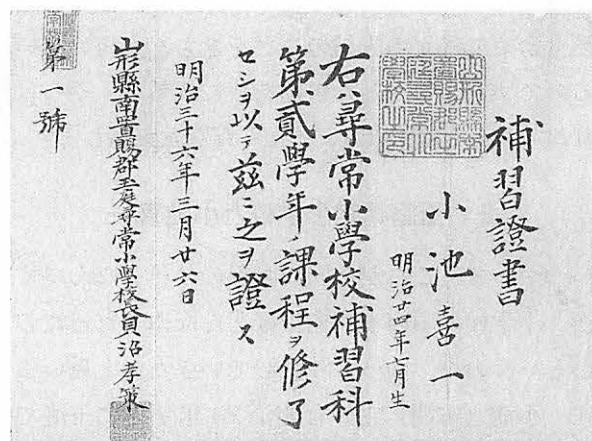 補習證書
小池喜一
明治廿四年七月生
右ハ尋常小學校補習科
第貳學年ノ課程ヲ修了
セシヲ以テ茲ニ之ヲ證ス
明治三十六年三月廿六日
山形縣南置賜郡玉庭尋常小學校長貝沼孝
第一號